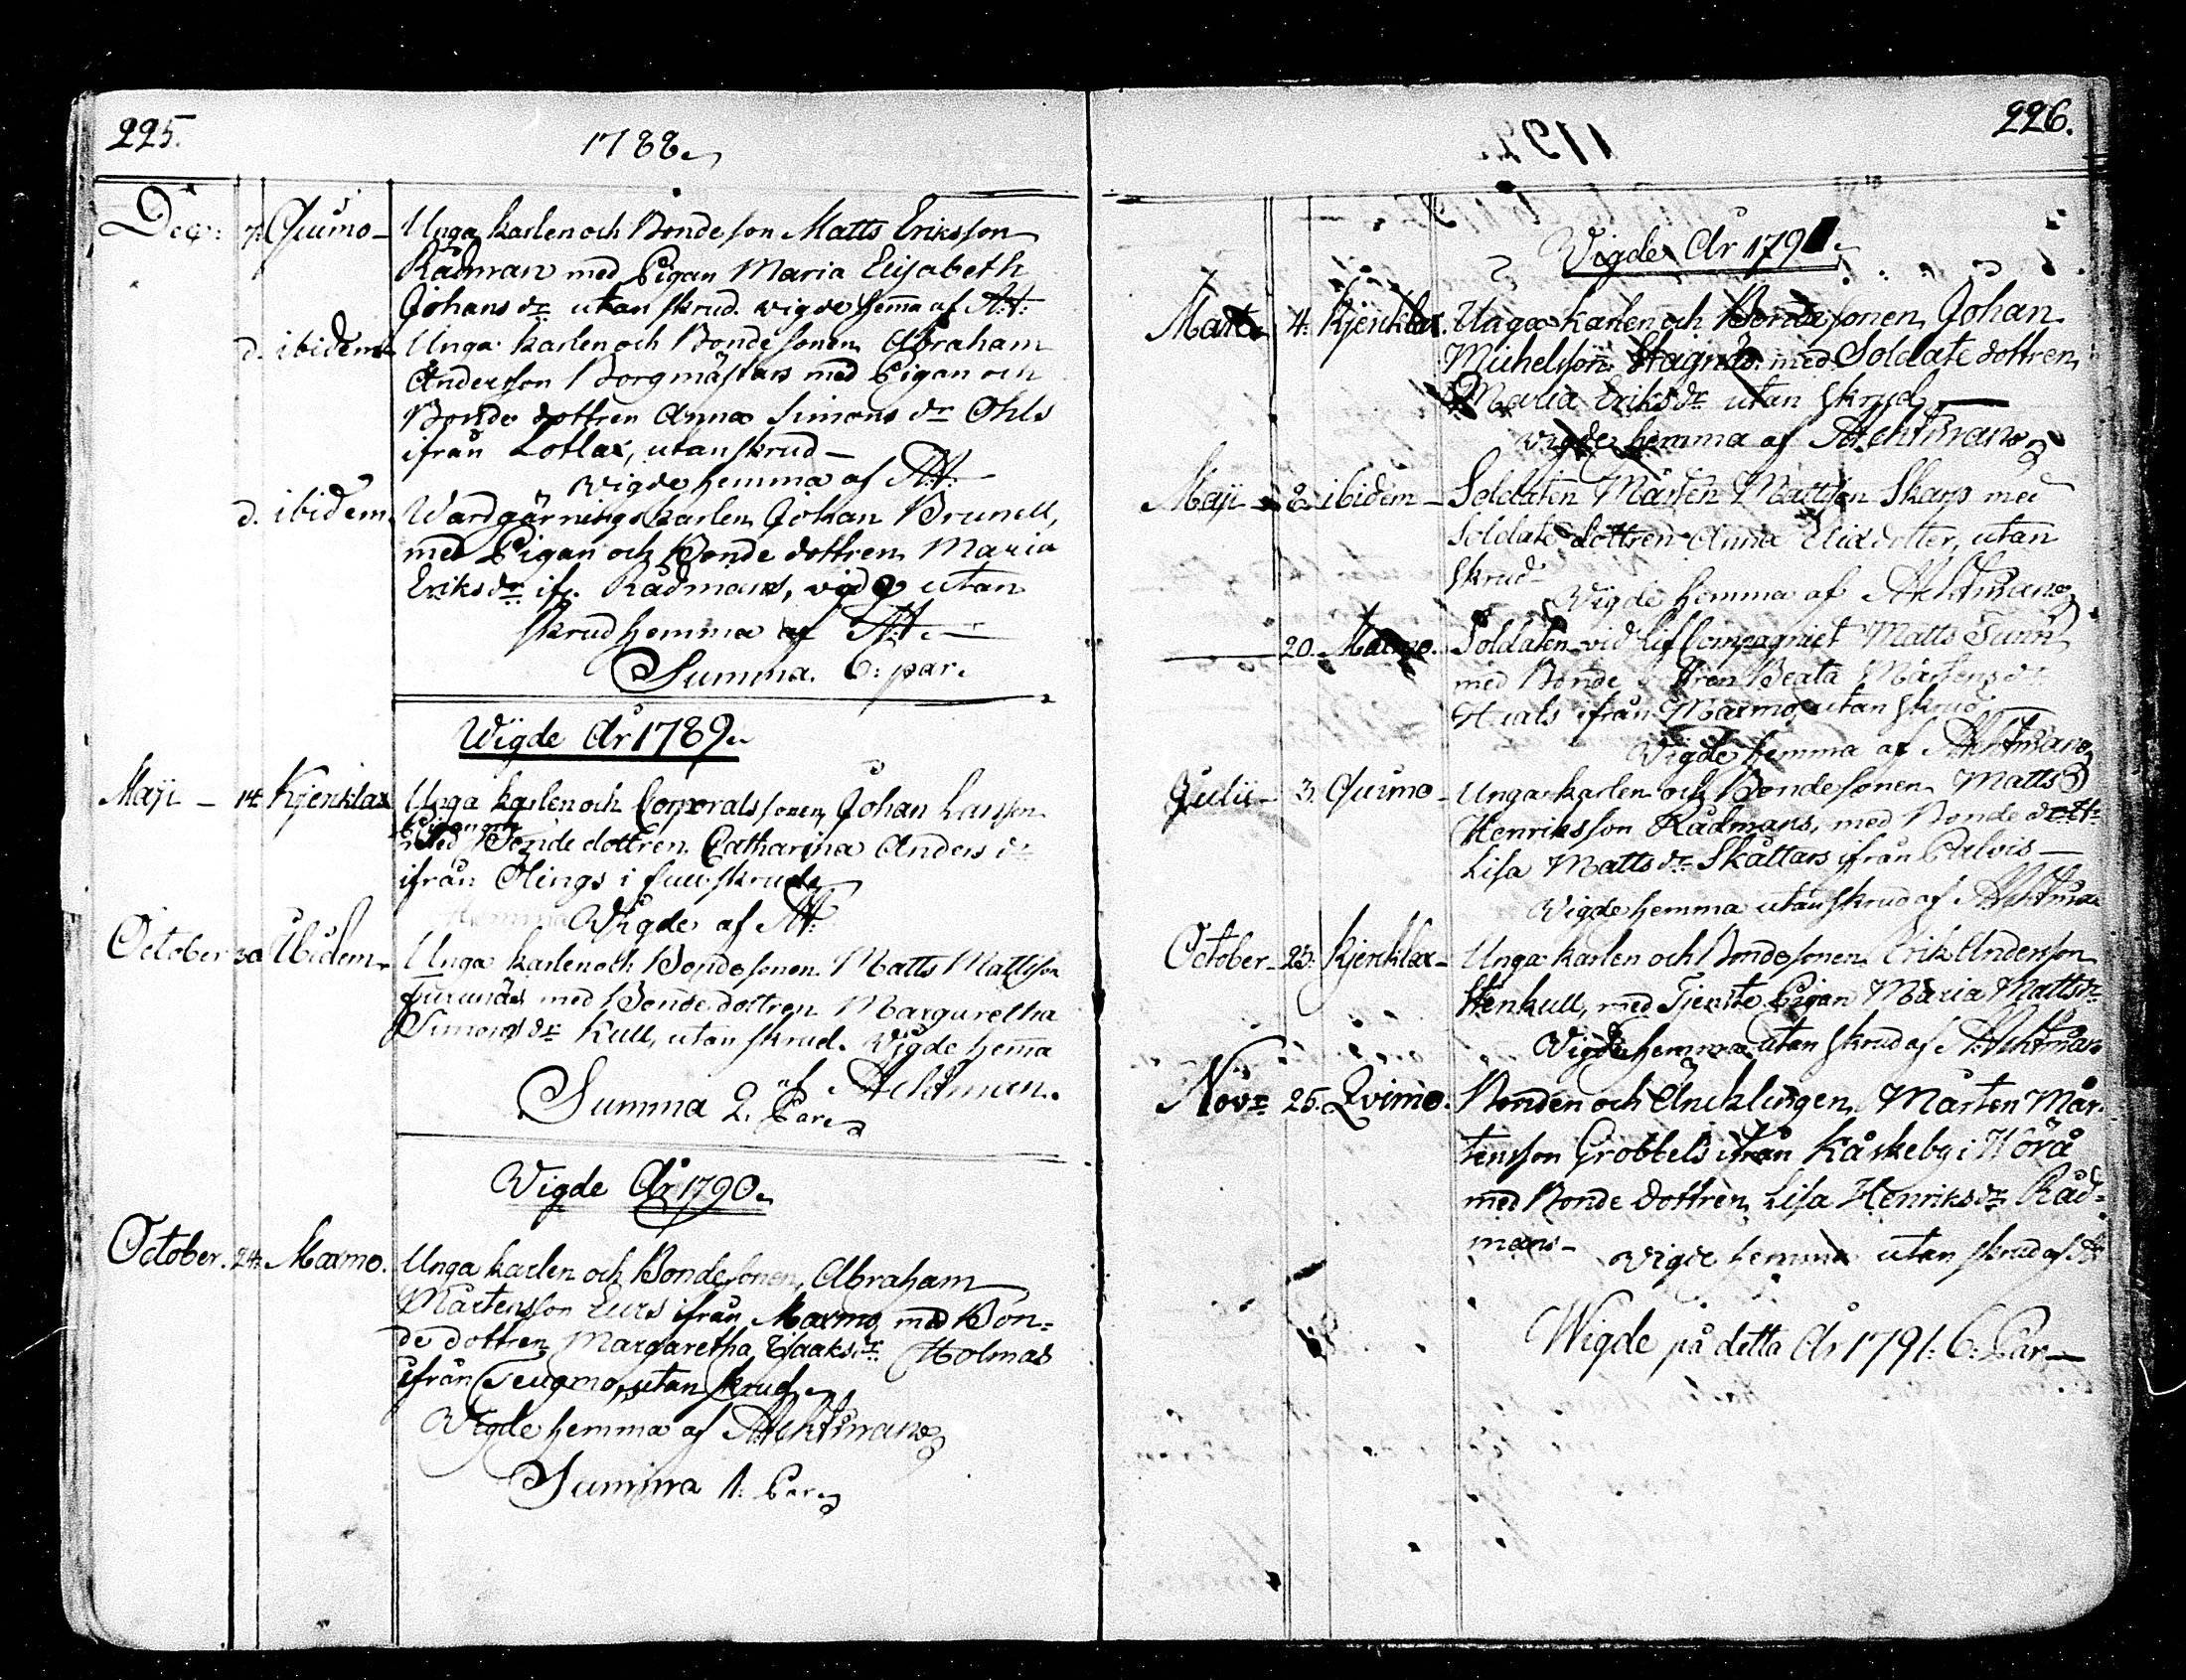 225.
1788.
Dec: 7. Quimo - Unga karlen och Bondeson Matts Eriksson
Rådman med Pigan Maria Elisabeth
Johans dr utan skrud. vigde hema af A:t:
d. ibidem Unga karlen och Bondesonen Abraham
Andersson Borgmästars med Pigan och
Bonde dottren Anna Simons dr Ohls
ifrån Lotlax, utan skrud -
vigde hemma af A:t:
d. ibidem Wardgärnings karlen Johan Brunell,
med Pigan och Bonde dottren Maria
Eriks dr ifr. Rådmans, vigde utan
skrud hemma af A:t. -
Summa. 6: par.
Wigde År 1789.
Maji - 14. Kjerklax Unga karlen och Corporalssonen Johan Larsson
Pigan och
med Bonde dottren Catharina Anders dr
ifrån Hings i full skrud
Vigde af A:t:
October 30 Ibidem Unga karlen och Bondesonen Matts Mattsson
Furunäs med Bonde dottren Margaretha
Simons dr Kull, utan skrud. Vigde hema
af Achtman.
Summa 2. Par
Vigde År 1790.
October. 24. Maxmo. Unga karlen och Bondesonen, Abraham
Mårtensson Lurs ifrån Maxmo med Bon=
de dottren Margaretha Isaaks dr Holmas
ifrån Teugmo, utan skrud.
Vigde hemma af Achtman
Summa 1. Par
226.
Vigde År 1791.
Mart. 4. Kjerklax. Unga karlen och Bondesonen Johan
Michelsson Stagnäs med Soldate dottren
Maria Eriks dr utan skrud
vigde hemma af Achtman
Maji - 2. ibidem - Soldaten Mårten Mattsson Skarp med
Soldate dottren Anna Elis dotter, utan
skrud -
Vigde hemma af Achtman
20. Maxmo. Soldaten vid Lif Compagniet Matts
med Bonde dottren Beata Mårtens dr
ifrån Maxmo, utan skrud
Vigde hemma af Achtman
Julii - 3. Quimo - Unga karlen och Bondesonen Matts
Henriksson Rådmans, med Bonde dott:
Lisa Matts dr Skåttars ifrån Palvis -
Vigde hemma utan skrud af Achtman
October - 23. Kjerklax - Unga karlen och Bondesonen Erik Andersson
Stenkull, med Tjenste Pigan Maria Matts dr
Vigde hemma utan skrud af Achtman
Novr 25. Qvimo. Bonden och Äncklingen Mårten Mår=
tensson Grobbels ifrån Kåskeby i Wörå
med Bonde dottren Lisa Henriks dr Råd=
mans -
vigde hemma utan skrud af A:
Wigde på detta År 1791. 6. Par -